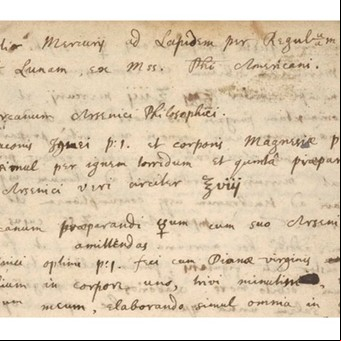 Mercurij ad Lapidem per Regulum
Lunam, ex Mss. Phi Americani.
Arcanum Arsenici Philosophici.
Draconis ignei p:1. et corporis Magnesiæ
simul per ignem torridum et
Arsenici veri circiter ℥viij
præparandi ☿um cum suo Arseni
amittendas
optimi p:1. fiei cum Dianæ virginis
in corpore uno, trivi minutim,
meum, elaborando simul omnia in